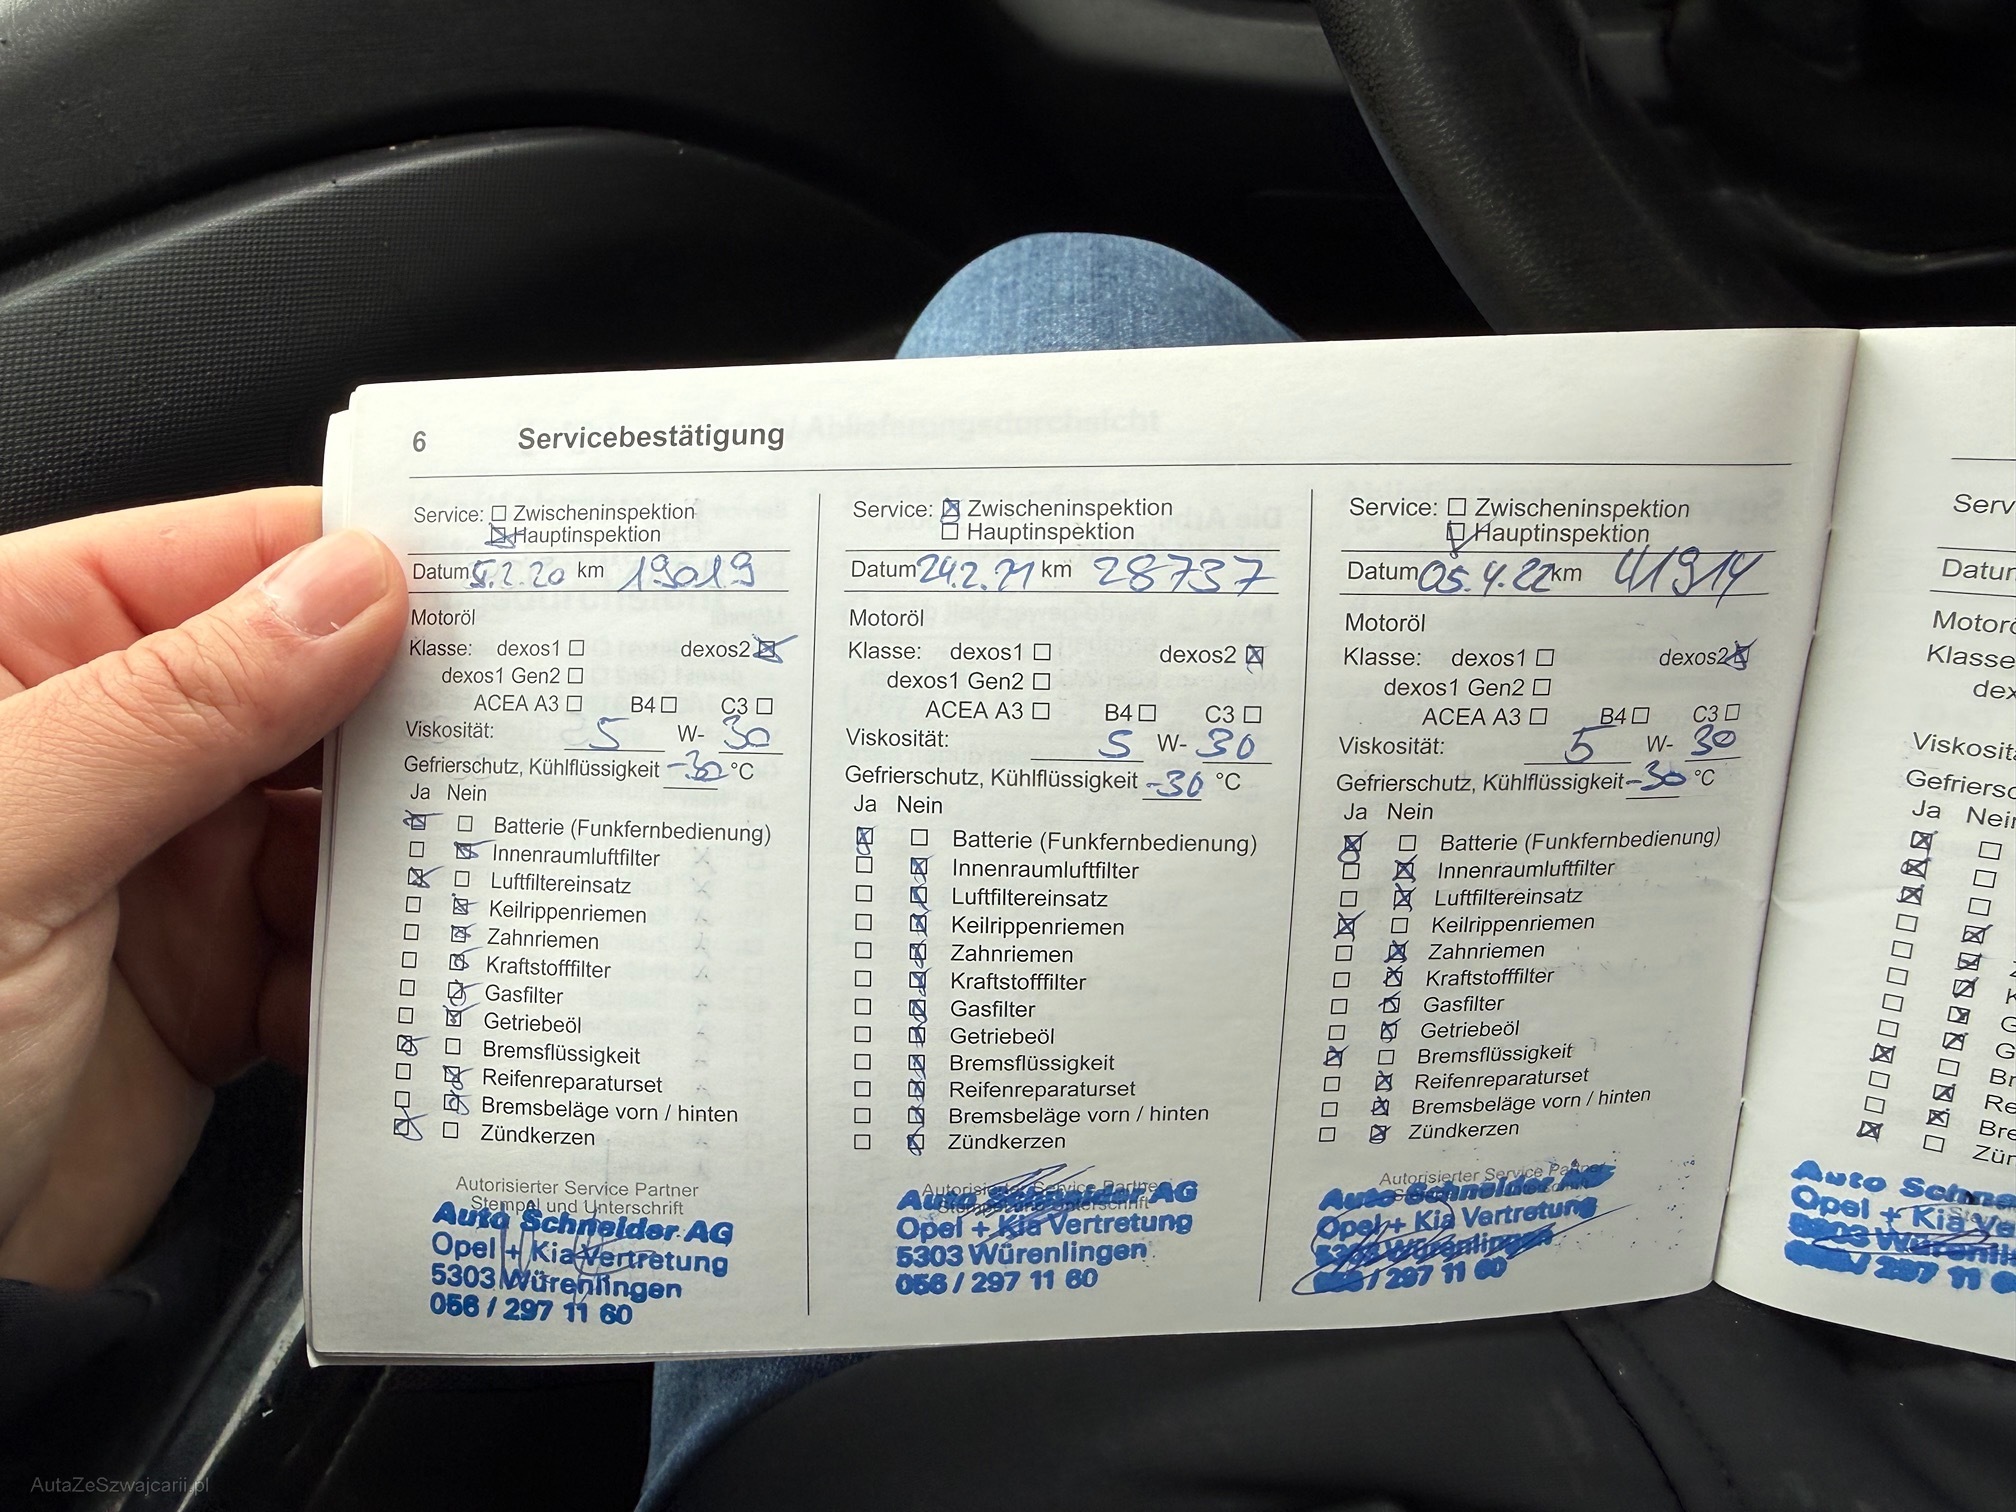 6 Servicebestätigung
Service: Zwischeninspektion
Hauptinspektion
Datum 5.2.20 km 19019
Motoröl
Klasse: dexos1 dexos2
dexos1 Gen2
ACEA A3 B4 C3
Viskosität: 5 W- 30
Gefrierschutz, Kühlflüssigkeit -30 °C
Ja Nein
Batterie (Funkfernbedienung)
Innenraumluftfilter
Luftfiltereinsatz
Keilrippenriemen
Zahnriemen
Kraftstofffilter
Gasfilter
Getriebeöl
Bremsflüssigkeit
Reifenreparaturset
Bremsbeläge vorn / hinten
Zündkerzen
Autorisierter Service Partner
Stempel und Unterschrift
Auto Schneider AG
Opel + Kia Vertretung
5303 Würenlingen
056 / 297 11 60
Service: Zwischeninspektion
Hauptinspektion
Datum 24.2.21 km 28737
Motoröl
Klasse: dexos1 dexos2
dexos1 Gen2
ACEA A3 B4 C3
Viskosität: 5 W- 30
Gefrierschutz, Kühlflüssigkeit -30 °C
Ja Nein
Batterie (Funkfernbedienung)
Innenraumluftfilter
Luftfiltereinsatz
Keilrippenriemen
Zahnriemen
Kraftstofffilter
Gasfilter
Getriebeöl
Bremsflüssigkeit
Reifenreparaturset
Bremsbeläge vorn / hinten
Zündkerzen
Autorisierter Service Partner
Stempel und Unterschrift
Auto Schneider AG
Opel + Kia Vertretung
5303 Würenlingen
056 / 297 11 60
Service: Zwischeninspektion
Hauptinspektion
Datum 05.4.22 km 41914
Motoröl
Klasse: dexos1 dexos2
dexos1 Gen2
ACEA A3 B4 C3
Viskosität: 5 W- 30
Gefrierschutz, Kühlflüssigkeit -30 °C
Ja Nein
Batterie (Funkfernbedienung)
Innenraumluftfilter
Luftfiltereinsatz
Keilrippenriemen
Zahnriemen
Kraftstofffilter
Gasfilter
Getriebeöl
Bremsflüssigkeit
Reifenreparaturset
Bremsbeläge vorn / hinten
Zündkerzen
Autorisierter Service Partner
Auto Schneider AG
Opel + Kia Vertretung
5303 Würenlingen
056 / 297 11 60
Serv
Datum
Motorö
Klasse
dex
Viskosita
Gefriersc
Ja Nein
Z
K
G
G
Br
Re
Bre
Zün
Auto Schne
Opel + Kia Ve
5303 Würenli
297 11 6
AutaZeSzwajcarii.pl